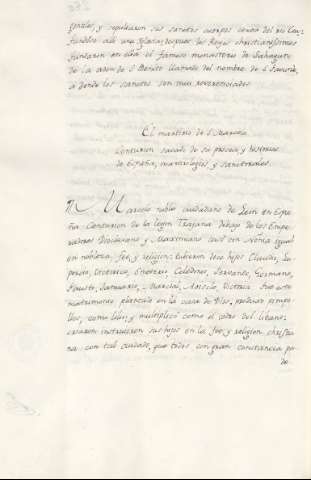 gentiles, y sepultaron sus santos cuerpos cerca del rio Cea
fundose alli una Iglesia; despues los Reyes christianissimos
fundaron en ella el famoso monasterio de Sahagun
de la orden de S. Benito llamado del nombre de S. Facundo,
a donde los santos son muy reverenciados
El martirio de S. Marcelo
Centurion sacado de su proceso, y historias
de España, martirologios, y santorales.
Marcelo noble ciudadano de Leon en Espa
ña Centurion de la legion Trajana debajo de los Empe
radores Diocleciano y Maximiano casó con Nonia igual
en nobleza, fee, y religion; tubieron doze hijos Claudio, Lu
percio, Victorico, Emeterio, Celedonio, Servando, Germano,
Fausto, Januario, Marcial, Acisclo, Victoria. Fue este
matrimonio plantado en la casa de Dios, produxo pimpo
llos, como lilios, y multiplicó como el cedro del libano;
casaron instruieron sus hijos en la fee, y religion christia
na con tal cuidado, que todos con gran constancia pa
de